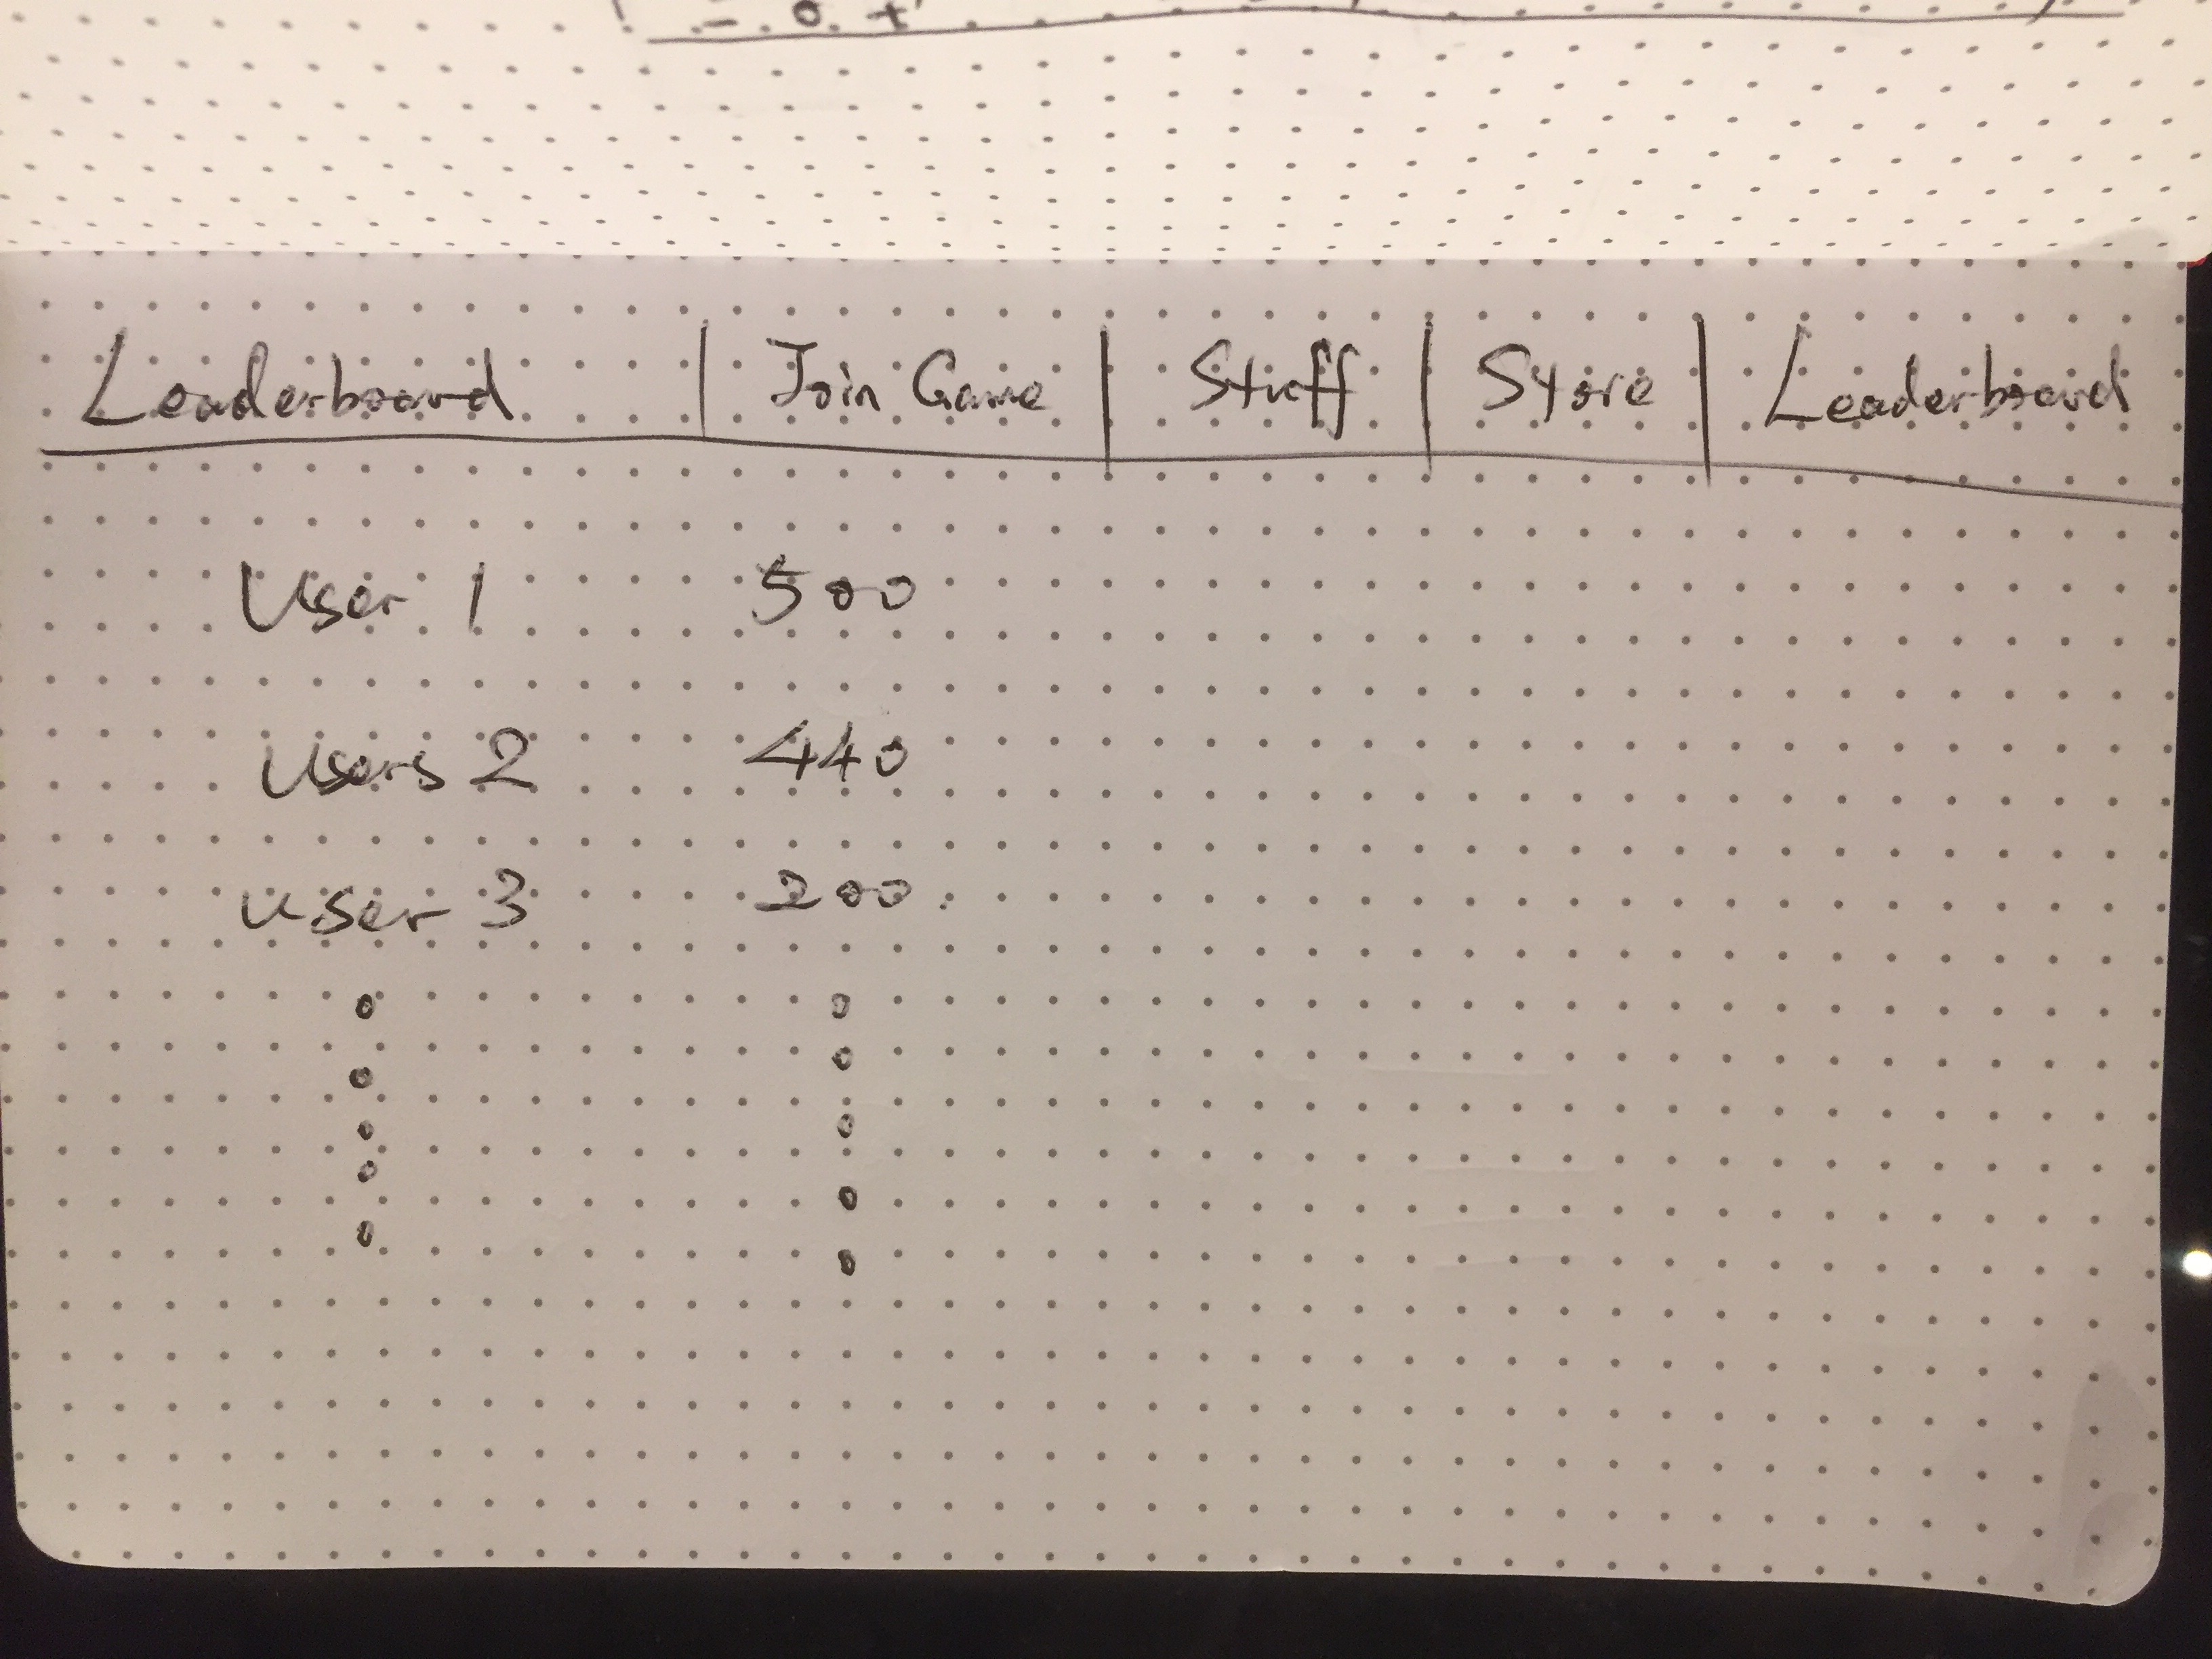 - . 0. +
Leaderboard | Join Game | Stuff | Store | Leaderboard
User 1 500
Users 2 440
User 3 200